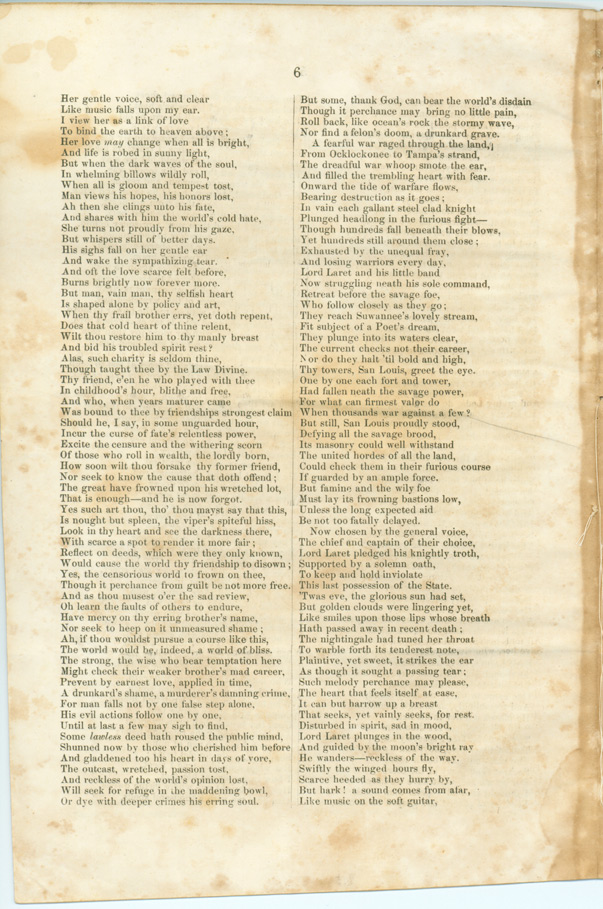 6
Her gentle voice, soft and clear
Like music falls upon my ear.
I view her as a link of love
To bind the earth to heaven above;
Her love may change when all is bright,
And life is robed in sunny light,
But when the dark waves of the soul,
In whelming billows wildly roll,
When all is gloom and tempest tost,
Man views his hopes, his honors lost,
Ah then she clings unto his fate,
And shares with him the world's cold hate,
She turns not proudly from his gaze,
But whispers still of better days.
His sighs fall on her gentle ear
And wake the sympathizing tear.
And oft the love scarce felt before,
Burns brightly now forever more.
But man, vain man, thy selfish heart
Is shaped alone by policy and art,
When thy frail brother errs, yet doth repent,
Does that cold heart of thine relent,
Wilt thou restore him to thy manly breast
And bid his troubled spirit rest?
Alas, such charity is seldom thine,
Though taught thee by the Law Divine.
Thy friend, e'en he who played with thee
In childhood's hour, blithe and free,
And who, when years maturer came
Was bound to thee by friendships strongest claim
Should he, I say, in some unguarded hour,
Incur the curse of fate's relentless power,
Excite the censure and the withering scorn
Of those who roll in wealth, the lordly born,
How soon wilt thou forsake thy former friend,
Nor seek to know the cause that doth offend;
The great have frowned upon his wretched lot,
That is enough—and he is now forgot.
Yes such art thou, tho' thou mayst say that this,
Is nought but spleen, the viper's spiteful hiss,
Look in thy heart and see the darkness there,
With scarce a spot to render it more fair;
Reflect on deeds, which were they only known,
Would cause the world thy friendship to disown;
Yes, the censorious world to frown on thee,
Though it perchance from guilt be not more free.
And as thou musest o'er the sad review,
Oh learn the faults of others to endure,
Have mercy on thy erring brother's name,
Nor seek to heep on it unmeasured shame;
Ah, if thou wouldst pursue a course like this,
The world would be, indeed, a world of bliss.
The strong, the wise who bear temptation here
Might check their weaker brother's mad career,
Prevent by earnest love, applied in time,
A drunkard's shame, a murderer's damning crime,
For man falls not by one false step alone,
His evil actions follow one by one,
Until at last a few may sigh to find,
Some lawless deed hath roused the public mind,
Shunned now by those who cherished him before
And gladdened too his heart in days of yore,
The outcast, wretched, passion tost,
And reckless of the world's opinion lost,
Will seek for refuge in the maddening bowl,
Or dye with deeper crimes his erring soul.
But some, thank God, can bear the world's disdain
Though it perchance may bring no little pain,
Roll back, like ocean's rock the stormy wave,
Nor find a felon's doom, a drunkard grave.
A fearful war raged through the land,
From Ocklockonee to Tampa's strand,
The dreadful war whoop smote the ear,
And filled the trembling heart with fear.
Onward the tide of warfare flows,
Bearing destruction as it goes;
In vain each gallant steel clad knight
Plunged headlong in the furious fight—
Though hundreds fall beneath their blows,
Yet hundreds still around them close;
Exhausted by the unequal fray,
And losing warriors every day,
Lord Laret and his little band
Now struggling neath his sole command,
Retreat before the savage foe,
Who follow closely as they go;
They reach Suwannee's lovely stream,
Fit subject of a Poet's dream,
They plunge into its waters clear,
The current checks not their career,
Nor do they halt 'til bold and high,
Thy towers, San Louis, greet the eye.
One by one each fort and tower,
Had fallen neath the savage power,
For what can firmest valor do
When thousands war against a few?
But still, San Louis proudly stood,
Defying all the savage brood,
Its masonry could well withstand
The united hordes of all the land,
Could check them in their furious course
If guarded by an ample force.
But famine and the wily foe
Must lay its frowning bastions low,
Unless the long expected aid
Be not too fatally delayed.
Now chosen by the general voice,
The chief and captain of their choice,
Lord Laret pledged his knightly troth,
Supported by a solemn oath,
To keep and hold inviolate
This last possession of the State.
'Twas eve, the glorious sun had set,
But golden clouds were lingering yet,
Like smiles upon those lips whose breath
Hath passed away in recent death;
The nightingale had tuned her throat
To warble forth its tenderest note,
Plaintive, yet sweet, it strikes the ear
As though it sought a passing tear;
Such melody perchance may please,
The heart that feels itself at ease,
It can but harrow up a breast
That seeks, yet vainly seeks, for rest.
Disturbed in spirit, sad in mood,
Lord Laret plunges in the wood,
And guided by the moon's bright ray
He wanders—reckless of the way.
Swiftly the winged hours fly,
Scarce heeded as they hurry by,
But hark! a sound comes from afar,
Like music on the soft guitar,